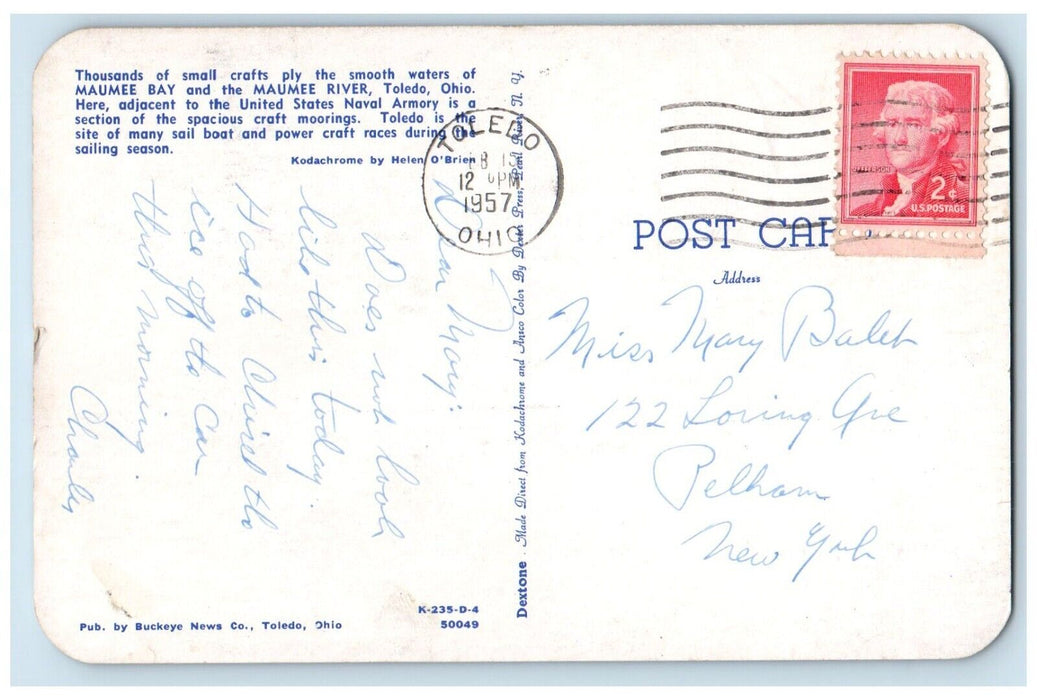 Thousands of small crafts ply the smooth waters of
MAUMEE BAY and the MAUMEE RIVER, Toledo, Ohio.
Here, adjacent to the United States Naval Armory is a
section of the spacious craft moorings. Toledo is the
site of many sail boat and power craft races during the
sailing season.
Kodachrome by Helen O'Brien
Dear Mary:
Does not look
like this today.
Had to chisel the
ice off the car
this morning.
Charles
Pub. by Buckeye News Co., Toledo, Ohio
K-235-D-4
50049
Dextone . Made Direct from Kodachrome and Ansco Color By Dexter Press, Pearl River, N. Y.
TOLEDO
12 PM
1957
OHIO
JEFFERSON
2¢
U.S. POSTAGE
POST CARD
Address
Miss Mary
122 Loring Ave
Pelham
New York